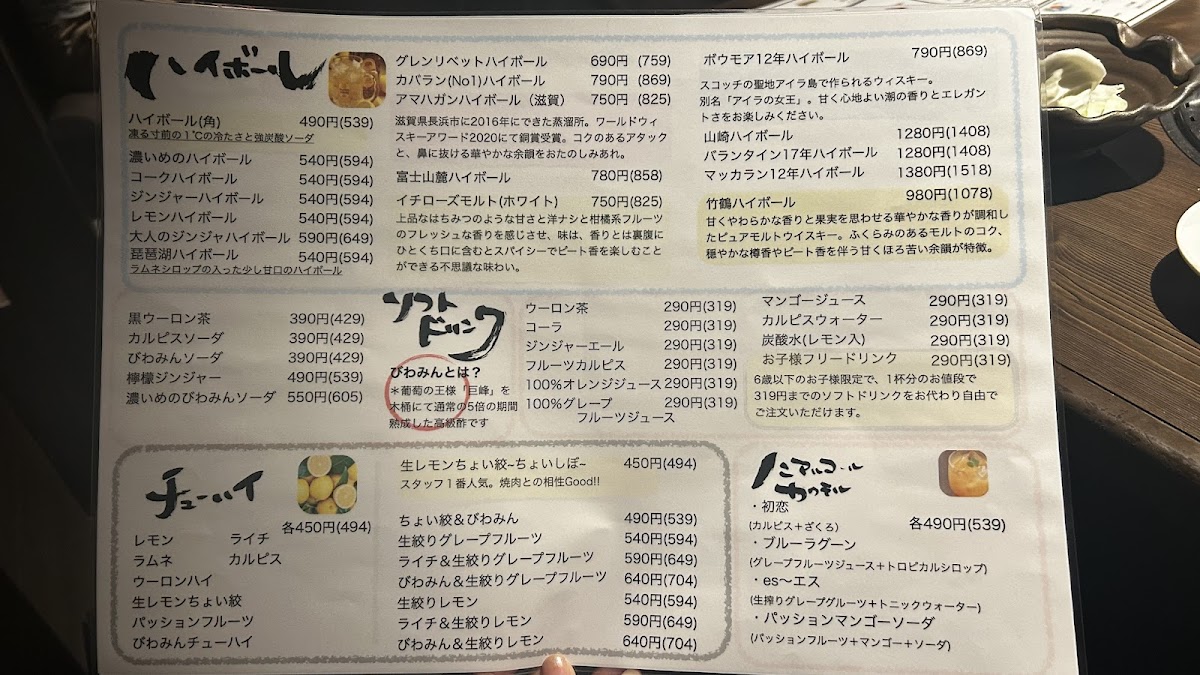 ハイボール
ハイボール(角) 490円(539)
凍る寸前の1℃の冷たさと強炭酸ソーダ
濃いめのハイボール 540円(594)
コークハイボール 540円(594)
ジンジャーハイボール 540円(594)
レモンハイボール 540円(594)
大人のジンジャハイボール 590円(649)
琵琶湖ハイボール 540円(594)
ラムネシロップの入った少し甘口のハイボール
グレンリベットハイボール 690円 (759)
カバラン(No1)ハイボール 790円 (869)
アマハガンハイボール（滋賀） 750円 (825)
滋賀県長浜市に2016年にできた蒸溜所。ワールドウィ
スキーアワード2020にて銅賞受賞。コクのあるアタック
と、鼻に抜ける華やかな余韻をおたのしみあれ。
富士山麓ハイボール 780円(858)
イチローズモルト(ホワイト) 750円(825)
上品なはちみつのような甘さと洋ナシと柑橘系フルーツ
のフレッシュな香りを感じさせ、味は、香りとは裏腹に
ひとくち口に含むとスパイシーでピート香を楽しむこと
ができる不思議な味わい。
ボウモア12年ハイボール 790円(869)
スコッチの聖地アイラ島で作られるウィスキー。
別名「アイラの女王」。甘く心地よい潮の香りとエレガン
トさをお楽しみください。
山崎ハイボール 1280円(1408)
バランタイン17年ハイボール 1280円(1408)
マッカラン12年ハイボール 1380円(1518)
竹鶴ハイボール 980円(1078)
甘くやわらかな香りと果実を思わせる華やかな香りが調和し
たピュアモルトウイスキー。ふくらみのあるモルトのコク、
穏やかな樽香やピート香を伴う甘くほろ苦い余韻が特徴。
黒ウーロン茶 390円(429)
カルピスソーダ 390円(429)
びわみんソーダ 390円(429)
檸檬ジンジャー 490円(539)
濃いめのびわみんソーダ 550円(605)
ソフト
ドリンク
びわみんとは？
＊葡萄の王様「巨峰」を
木桶にて通常の5倍の期間
熟成した高級酢です
ウーロン茶 290円(319)
コーラ 290円(319)
ジンジャーエール 290円(319)
フルーツカルピス 290円(319)
100%オレンジジュース 290円(319)
100%グレープ 290円(319)
フルーツジュース
マンゴージュース 290円(319)
カルピスウォーター 290円(319)
炭酸水(レモン入) 290円(319)
お子様フリードリンク 290円(319)
6歳以下のお子様限定で、1杯分のお値段で
319円までのソフトドリンクをお代わり自由で
ご注文いただけます。
チューハイ
各450円(494)
レモン ライチ
ラムネ カルピス
ウーロンハイ
生レモンちょい絞
パッションフルーツ
びわみんチューハイ
生レモンちょい絞~ちょいしぼ~ 450円(494)
スタッフ1番人気。焼肉との相性Good!!
ちょい絞＆びわみん 490円(539)
生絞りグレープフルーツ 540円(594)
ライチ＆生絞りグレープフルーツ 590円(649)
びわみん＆生絞りグレープフルーツ 640円(704)
生絞りレモン 540円(594)
ライチ＆生絞りレモン 590円(649)
びわみん＆生絞りレモン 640円(704)
ノンアルコール
カクテル
・初恋
(カルピス＋ざくろ) 各490円(539)
・ブルーラグーン
(グレープフルーツジュース＋トロピカルシロップ)
・es〜エス
(生搾りグレープグルーツ＋トニックウォーター)
・パッションマンゴーソーダ
(パッションフルーツ＋マンゴー＋ソーダ)